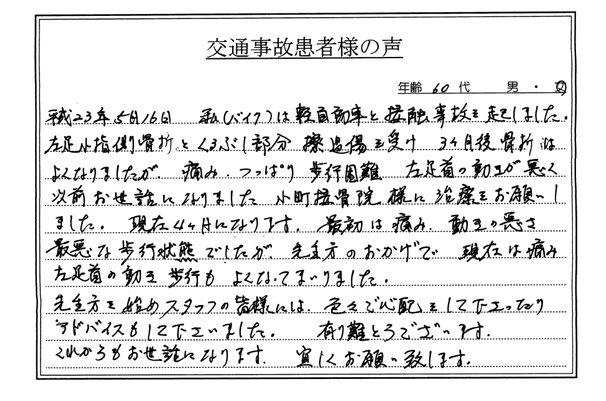 交通事故患者様の声
年齢 60代 男・女
平成23年5月16日 私(バイク)は軽自動車と接触事故を起しました。
左足小指側骨折とくるぶし部分 擦過傷を受け 3ヶ月後骨折は
よくなりましたが、痛み、つっぱり 歩行困難 左足首の動きが悪く
以前お世話になりました 小町接骨院様に治療をお願いし
ました。 現在4ヶ月になります。 最初は痛み、動きの悪さ
最悪な歩行状態でしたが、先生方のおかげで 現在は痛み
左足首の動き 歩行も よくなってまいりました。
先生方を始めスタッフの皆様には、色々で心配をして下さったり
アドバイスもして下さいました。 有り難とうございます。
これからもお世話になります。 宜しくお願い致します。